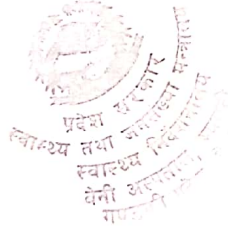 प्रदेश सरकार
स्वास्थ्य तथा जनसंख्या मन्त्रालय
स्वास्थ्य निर्देशनालय
बेनी अस्पताल